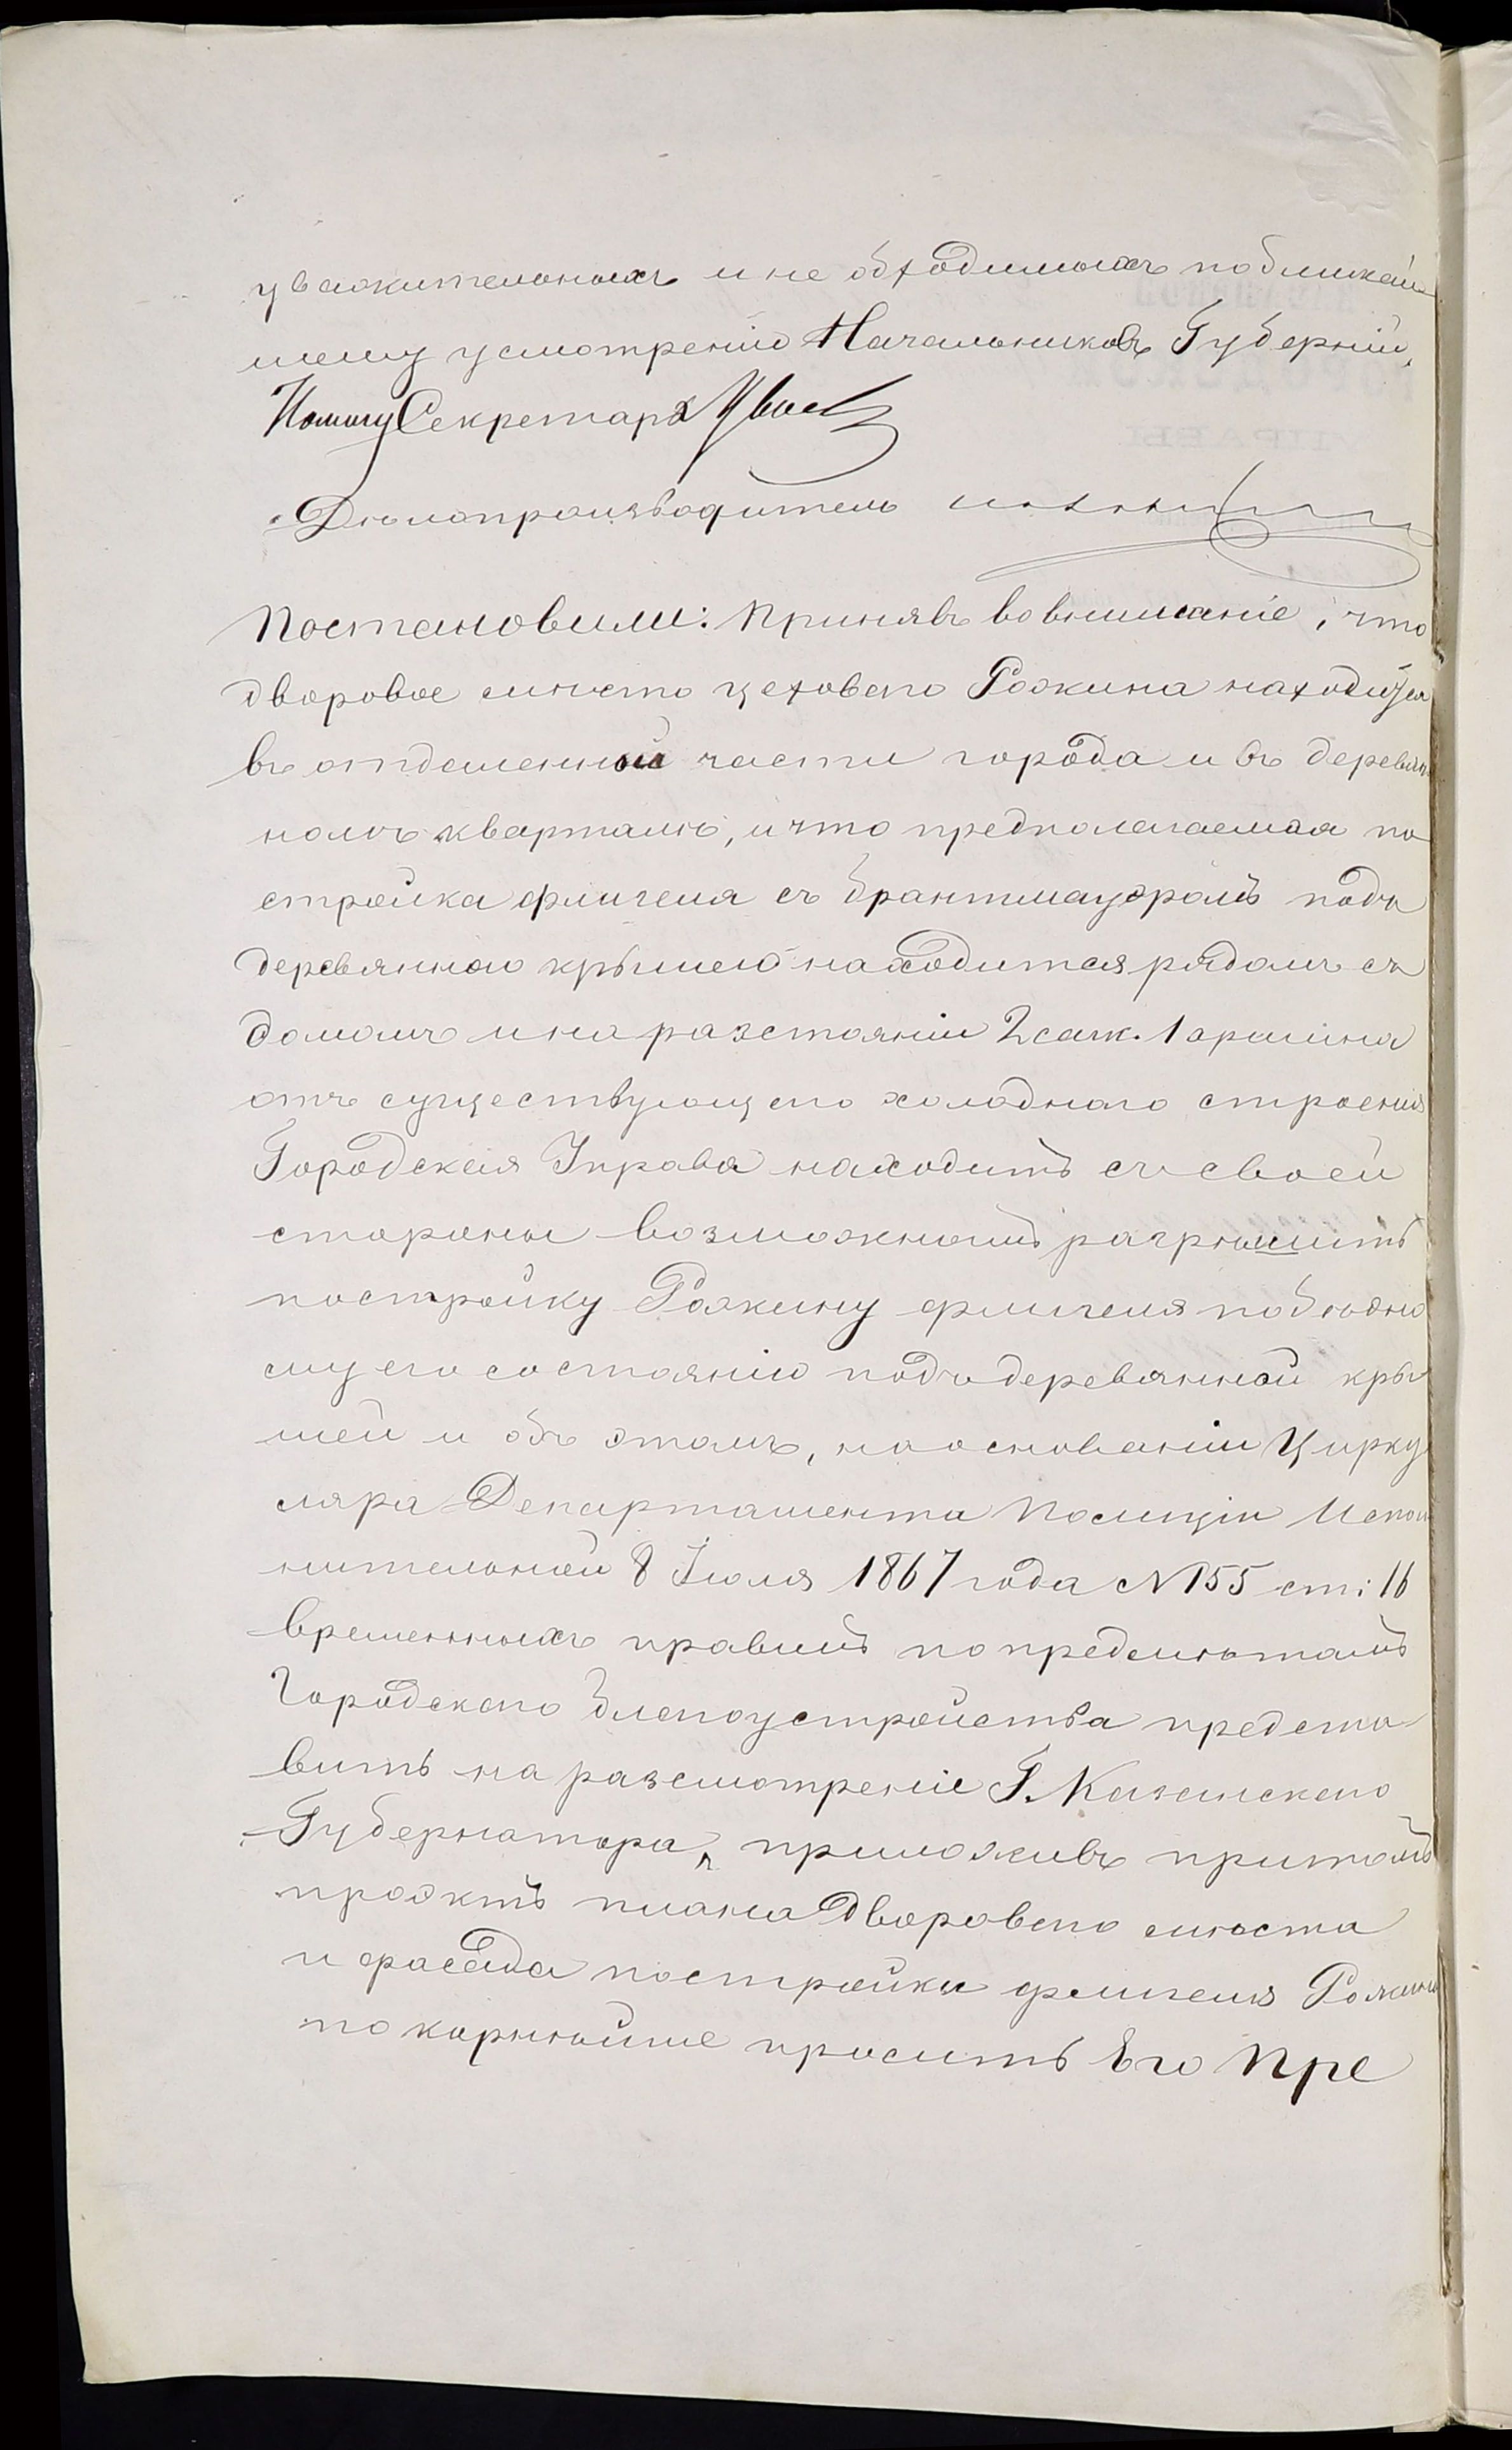 уважительныхъ и не обходимыхъ по ближай
шему усмотренію Начальниковъ Губерній.
Помощ Секретаря
Дѣлопроизводитель
Постановили: Принявъ во вниманіе, что
дворовое мѣсто цеховаго Рожина находится
въ отдаленной части города и въ деревян
номъ кварталѣ, и что предполагаемая по
стройка флигеля съ брантмауэромъ подъ
деревянною крышею находится рядомъ съ
домомъ и на разстояніи 2 саж. 1 аршина
отъ существующаго холоднаго строенія
Городская Управа находитъ съ своей
стороны возможнымъ разрѣшить
постройку Рожину флигеля по бѣдно
му его состоянію подъ деревянной кры
шей и объ этомъ, на основаніи Цирку
ляра Департамента Полиціи Испол
нительной 8 Іюля 1867 года № 155 ст: 16
временныхъ правилъ по предмѣтамъ
Городскаго благоустройства предста
вить на разсмотреніе Г. Казанскаго
Губернатора, приложивъ притомъ
проэктъ плана дворового мѣста
и фасада постройки флигеля Рожина
покорнѣйше просить Его Пре